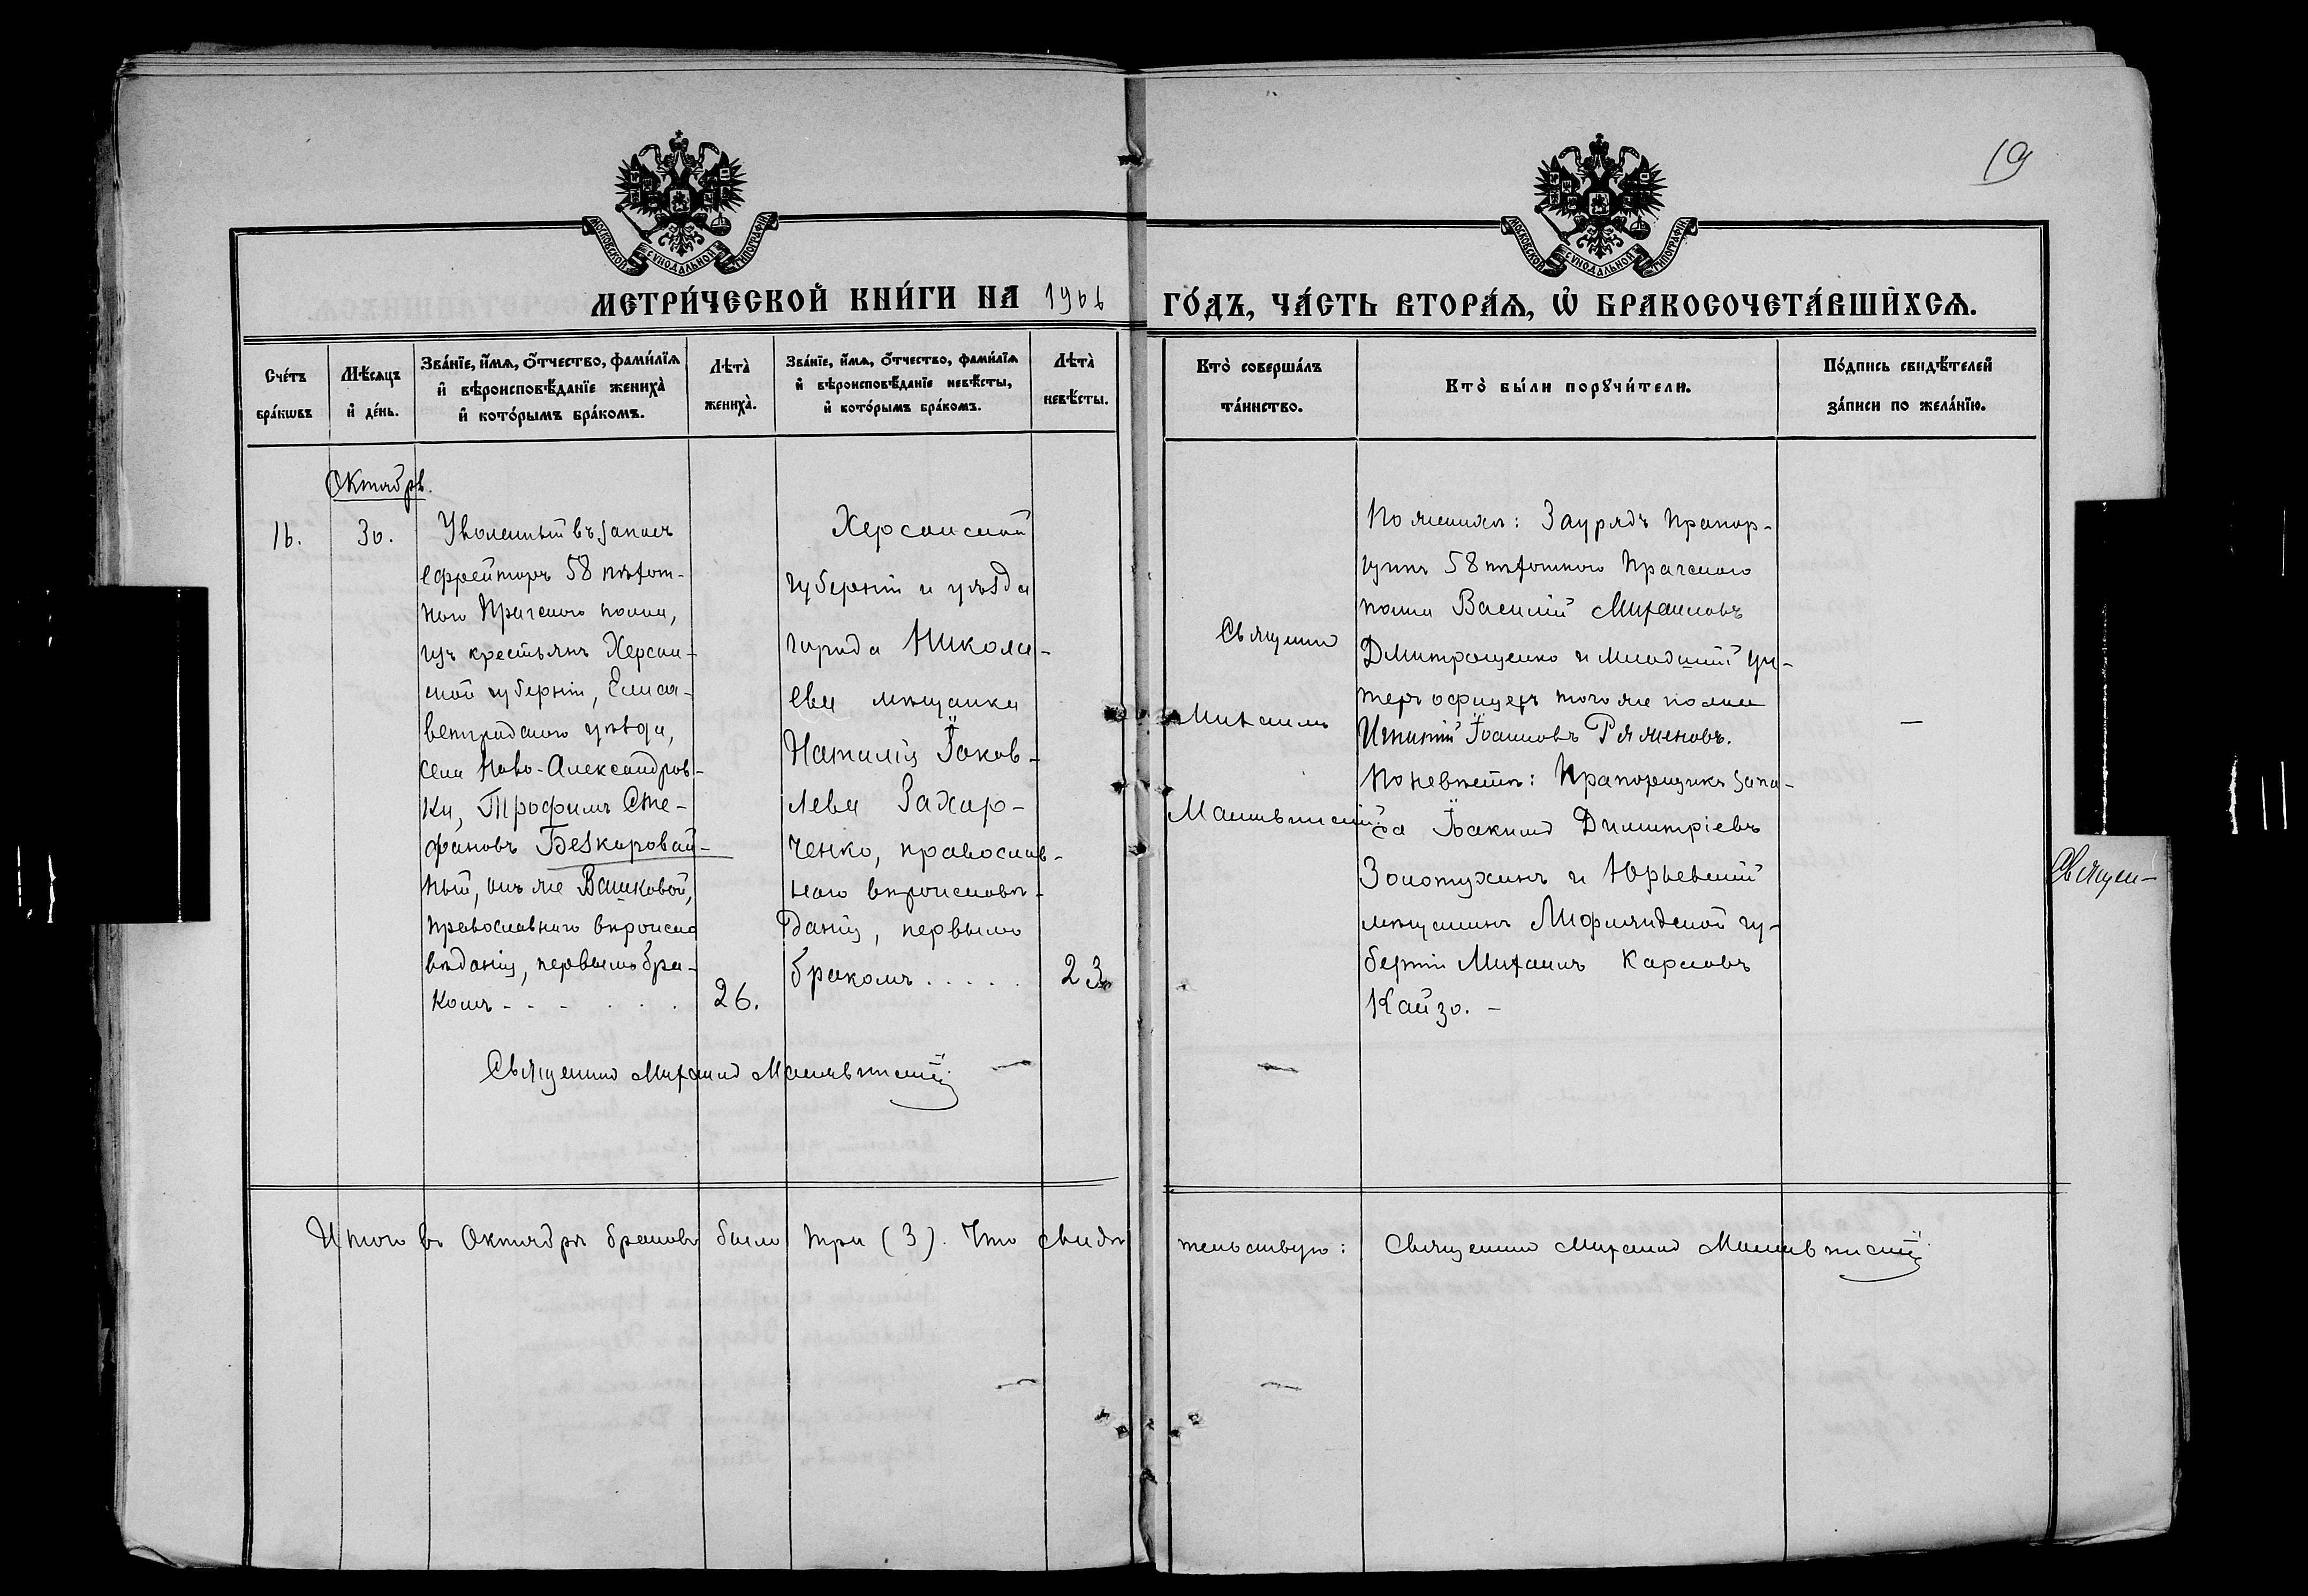 19
МОСКОВСКОЙ СѴНОДАЛЬНОЙ ТИПОГРАФІИ
МОСКОВСКОЙ СѴНОДАЛЬНОЙ ТИПОГРАФІИ
МЕТРИ́ЧЕСКОЙ КНИ́ГИ НА 1906 ГО́ДЪ, ЧА́СТЬ ВТОРА́Я, Ѡ БРАКОСОЧЕТА́ВШИХСЯ.
Сче́тъ
бра́кѡвъ
Мѣ́сяцъ
и де́нь.
Зва́нїе, и́мя, о́тчество, фами́лїя
и вѣроисповѣ́данїе жениха̀
и кото́рымъ бра́комъ.
Лѣта̀
жениха̀.
Зва́нїе, и́мя, о́тчество, фами́лїя
и вѣроисповѣ́данїе невѣ́сты,
и кото́рымъ бра́комъ.
Лѣта̀
невѣ́сты.
Кто̀ соверша́лъ
та́инство.
Кто̀ бы́ли порꙋчи́тели.
По́дпись свидѣ́телей
за́писи по жела́нїю.
Октябрь.
16.
30.
Уволенный въ запасъ
ефрейторъ 58 пѣхот-
наго Прагскаго полка,
изъ крестьянъ Херсон-
ской губерніи, Елиса-
ветградскаго уѣзда,
села Ново-Александров-
ки, Трофимъ Сте-
фановъ Безкаровай-
ный, онъ же Вашковой,
православнаго вѣроиспо
вѣданія, первымъ бра-
комъ - - - . . .
26.
Херсонской
губерніи и уѣзда
города Никола-
ева мѣщанка
Наталія Іаков-
лева Захар-
ченко, православ-
наго вѣроисповѣ-
данія, первымъ
бракомъ . . . . .
23.
Священникъ
Михаилъ
По женихѣ: Заурядъ прапор-
щикъ 58 пѣхотного Прагскаго
полка Василій Михаиловъ
Дмитрощенко и младшій ун-
теръ офицеръ того же полка
Игнатій Іоанновъ Ряженовъ.
По невѣстѣ: Прапорщикъ запа-
са Іоакимъ Димитріевъ
Золотухинъ и Юрьевскій
мѣщанинъ Лифляндской гу-
берніи Михаилъ Карловъ
Кайзо. -
—
Священникъ Михаилъ
Священ-
Итого въ Октябрѣ браковъ было три (3). Что свидѣ
тельствую: Священникъ Михаилъ